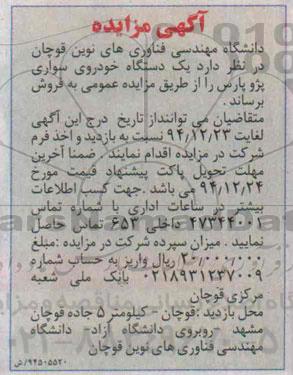 آگهی مزایده
دانشگاه مهندسی فناوری های نوین قوچان
در نظر دارد یک دستگاه خودروی سواری
پژو پارس را از طریق مزایده عمومی به فروش
برساند .
متقاضیان می تواننداز تاریخ درج این آگهی
لغایت ۹۴,۱۲,۲۳ نسبت به بازدید و اخذ فرم
شرکت در مزایده اقدام نمایند . ضمنا آخرین
مهلت تحویل پاکت پیشنهاد قیمت مورخ
۹۴,۱۲,۲۴ می باشد .جهت کسب اطلاعات
بیشتر در ساعات اداری با شماره تماس
۴۷۳۴۴۰۰۱ داخلی ۶۵۳ تماس حاصل
نمایید . میزان سپرده شرکت در مزایده :مبلغ
ریال واریز به حساب شماره
۰۲۱۸۹۳۱۲۳۷۰۰۹ بانک ملی شعبه
مرکزی قوچان
محل بازدید :قوچان - کیلومتر ۵ جاده قوچان
مشهد - روبروی دانشگاه آزاد- دانشگاه
مهندسی فناوری های نوین قوچان
۹۴۵۰۵۵۲۰/ش